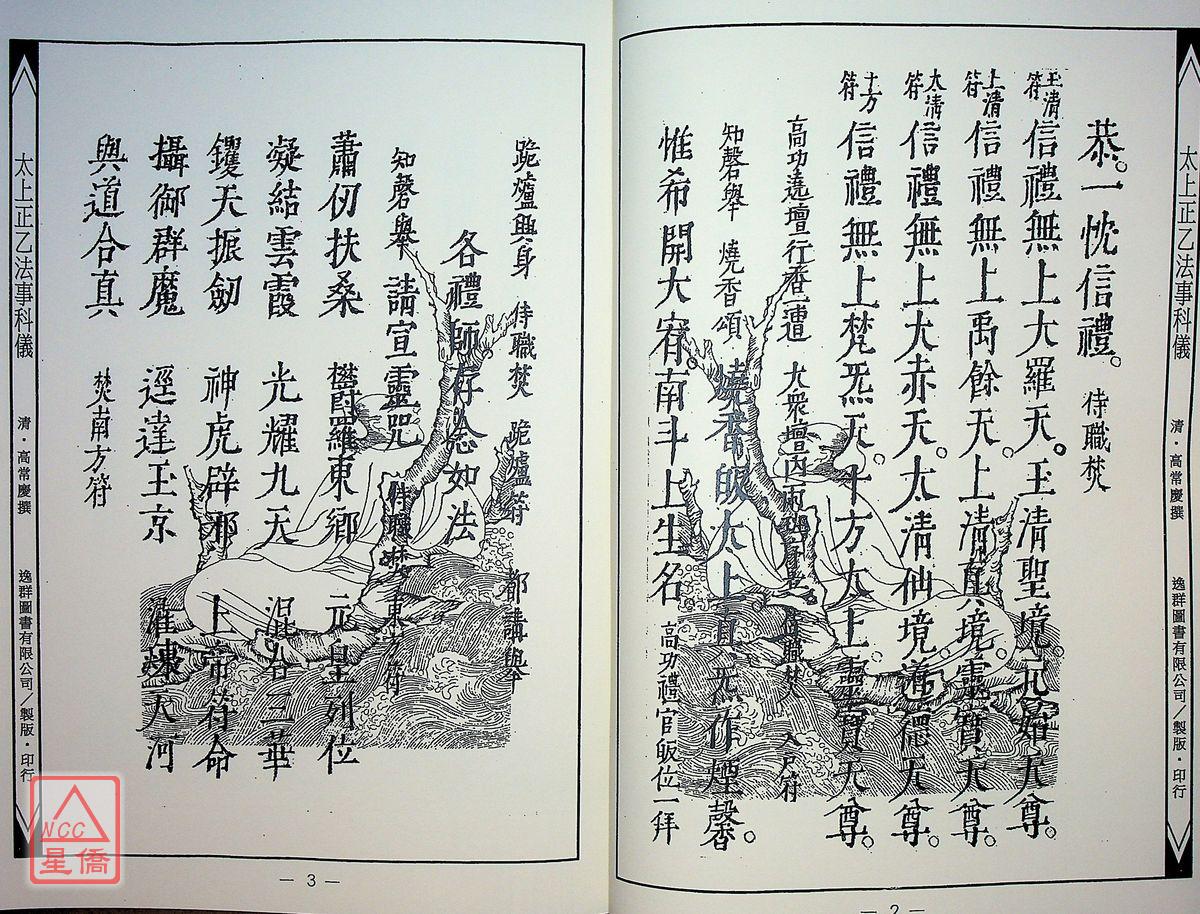 太上正乙法事科儀 清·高常慶撰 逸群圖書有限公司/製版·印行
恭。一忱信禮。 侍職焚
玉清符 信禮無上大羅天。玉清聖境元始天尊。
上清符 信禮無上禹餘天。上清真境靈寶天尊。
太清符 信禮無上大赤天。太清仙境道德天尊。
十方符 信禮無上梵炁天。十方太上靈寶天尊。
高功遶壇行香一遭 大衆壇內 侍職焚 入戶符
知磬舉 燒香頌 燒香皈太上真炁作煙馨。
惟希開大宥。南斗上生名 高功禮官皈位一拜
— 2 —
跪爐興身 侍職焚 跪爐符 都講舉
各禮師存念如法
知磬舉 請宣靈咒 侍職焚 東方符
蕭仞扶桑 欝羅東鄉 元皇列位
凝結雲霞 光耀九天 混合三華
钁天振劒 神虎辟邪 上帝符命
攝御群魔 逕達玉京 灌煉天河
與道合真 焚南方符
太上正乙法事科儀 清·高常慶撰 逸群圖書有限公司/製版·印行
— 3 —
WCC
星僑